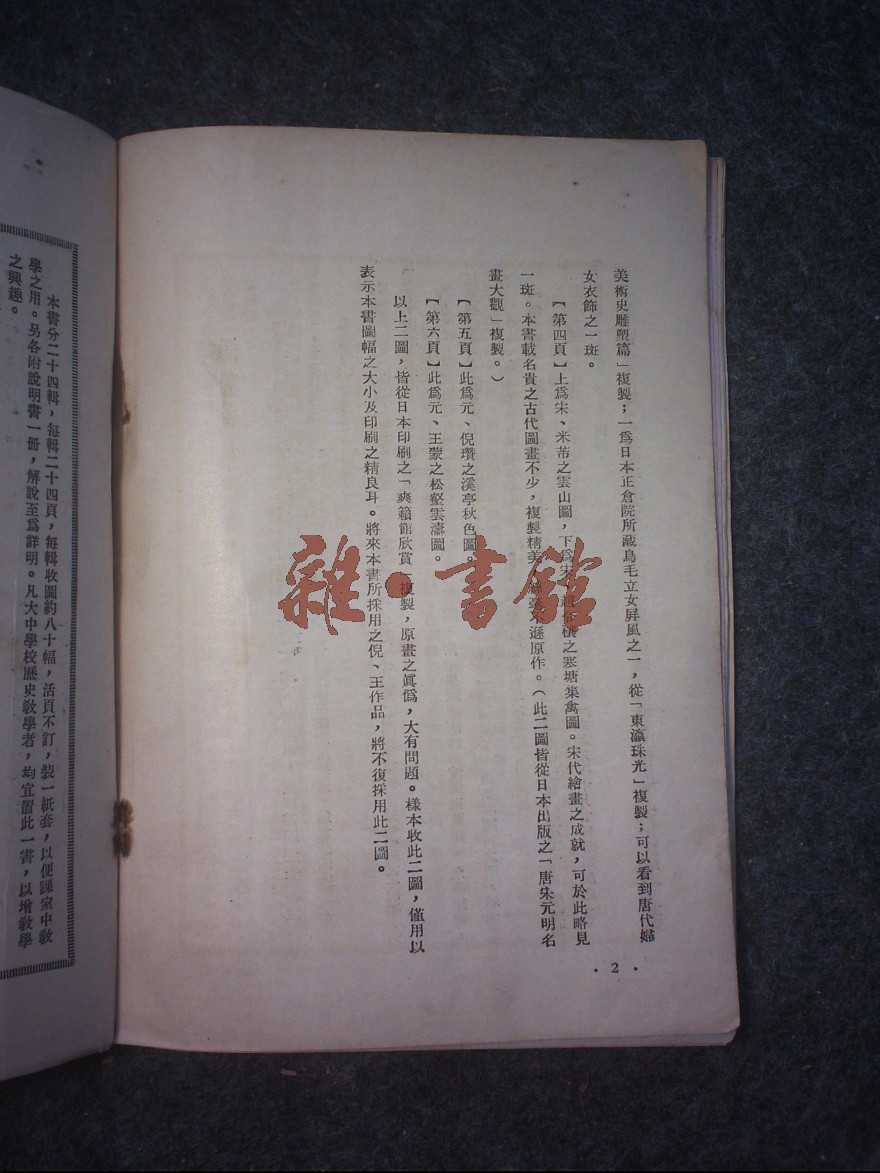 美術史雕塑篇」複製；一爲日本正倉院所藏鳥毛立女屏風之一，從「東瀛珠光」複製；可以看到唐代婦
女衣飾之一斑。
【第四頁】上爲宋、米芾之雲山圖，下爲宋、之寒塘集禽圖。宋代繪畫之成就，可於此略見
一斑。本書載名貴之古代圖畫不少，複製精美，不遜原作。（此二圖皆從日本出版之「唐宋元明名
畫大觀」複製。）
【第五頁】此爲元、倪瓚之溪亭秋色圖。
【第六頁】此爲元、王蒙之松壑雲濤圖。
以上二圖，皆從日本印刷之「爽籟館欣賞」複製，原畫之眞僞，大有問題。樣本收此二圖，僅用以
表示本書圖幅之大小及印刷之精良耳。將來本書所採用之倪、王作品，將不復採用此二圖。
· 2 ·
本書分二十四輯，每輯二十四頁，每輯收圖約八十幅，活頁不訂，裝一紙套，以便課室中教
學之用。另各附說明書一冊，解說至爲詳明。凡大中學校歷史教學者，均宜置此一書，以增教學
之興趣。
雜·書館